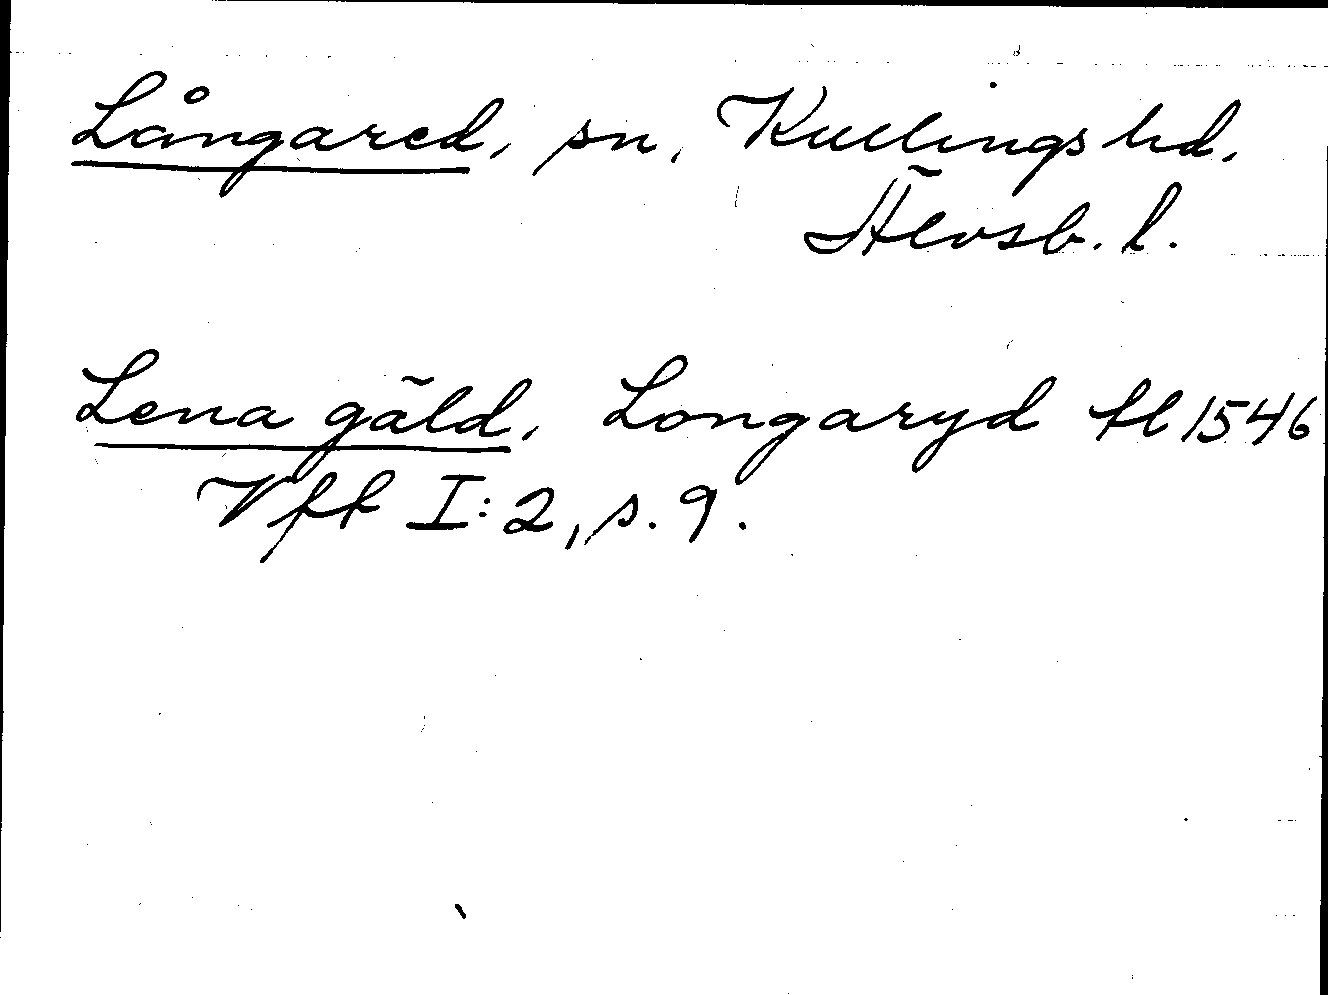 Långared, sn, Kullings hd,
Älvsb. l.
Lena gäld, Longaryd fl 1546
Vff I:2, s. 9.